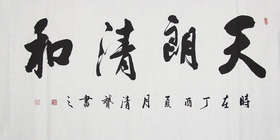 天朗清和
時在丁酉夏月清贊書之